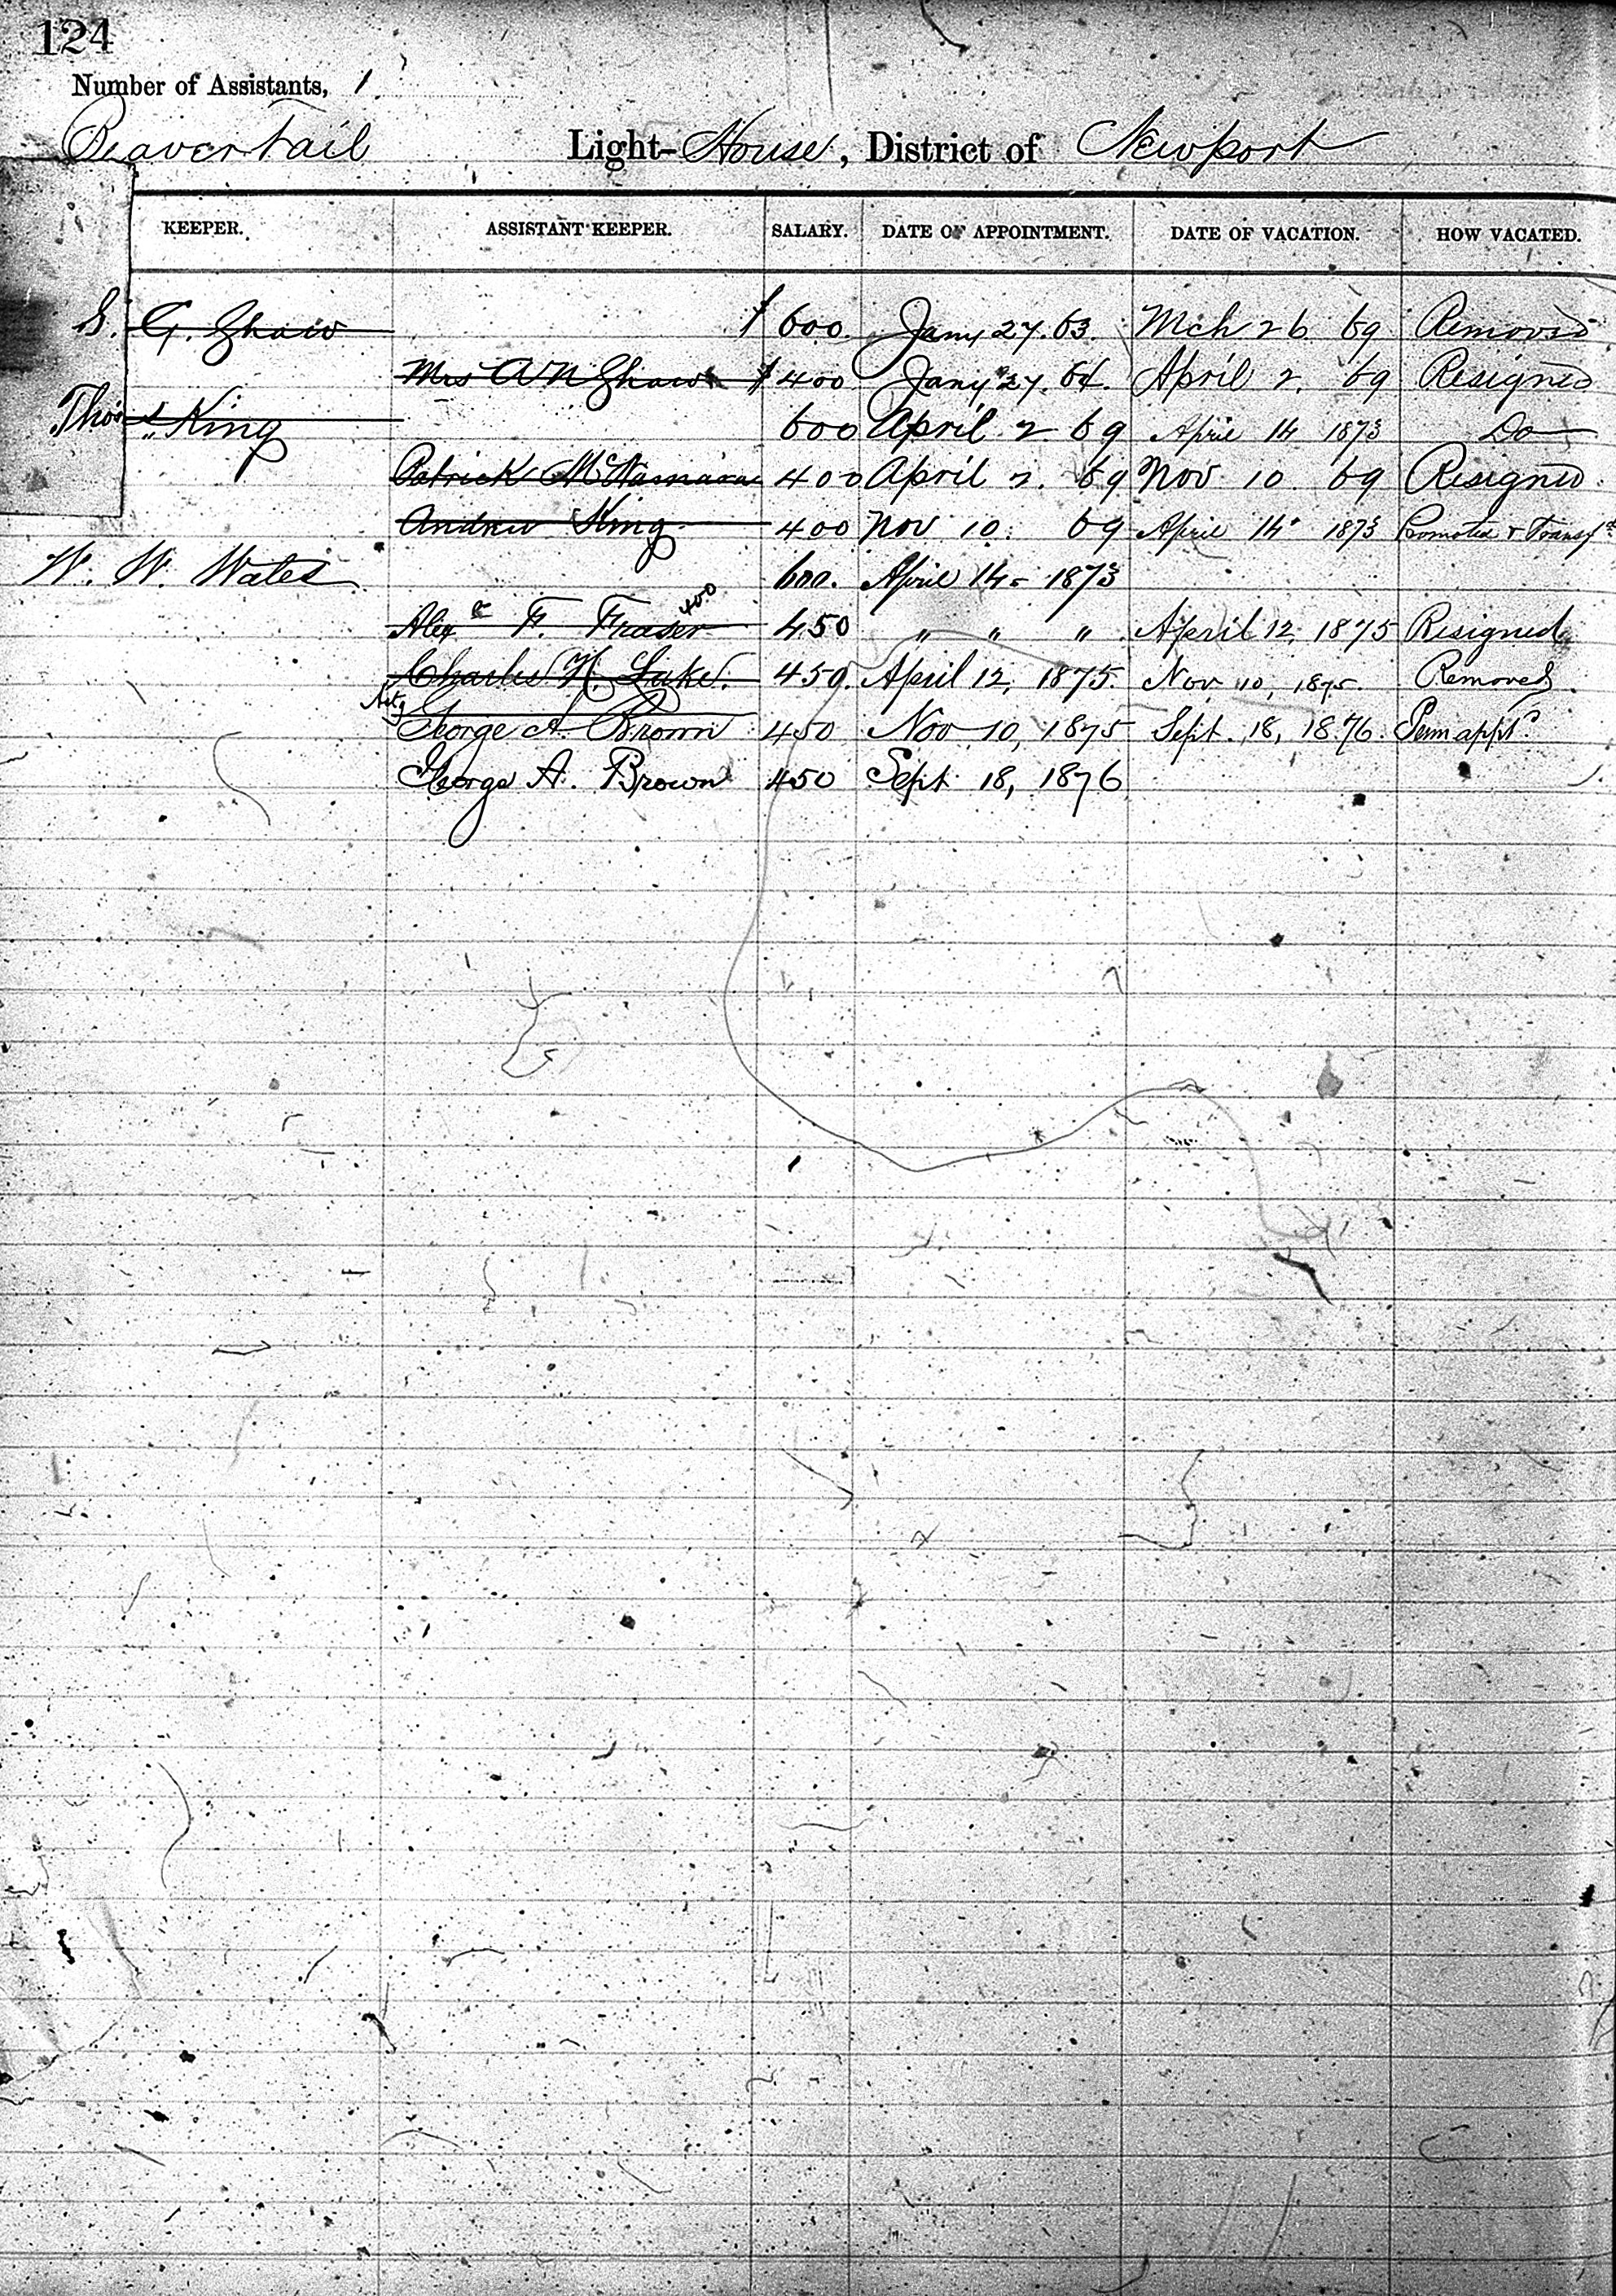 124
Number of Assistants, 1
Beavertail Light-House, District of Newport
KEEPER. ASSISTANT KEEPER. SALARY. DATE OF APPOINTMENT. DATE OF VACATION. HOW VACATED.
S. G. Shaw $600. Jany 27. 63. Mch 26 69 Removed
Mrs A N Shaw $400 Jany 27. 64. April 2, 69 Resigned
Thos King 600 April 2 69 April 14 1873 Do
Patrick McNamara 400 April 2. 69 Nov 10. 69 Resigned
Andrew King 400 Nov 10. 69 April 14 1873 Promoted & Transfd
W. W. Wales 600. April 14 1873
400
Alexr F. Fraser 450 " " " April 12, 1875 Resigned
Charles H. Luke. 450. April 12, 1875. Nov 10, 1875. Removed.
Actg George A. Brown 450 Nov 10, 1875 Sept. 18, 1876. Perm appt.
George A. Brown 450 Sept 18, 1876